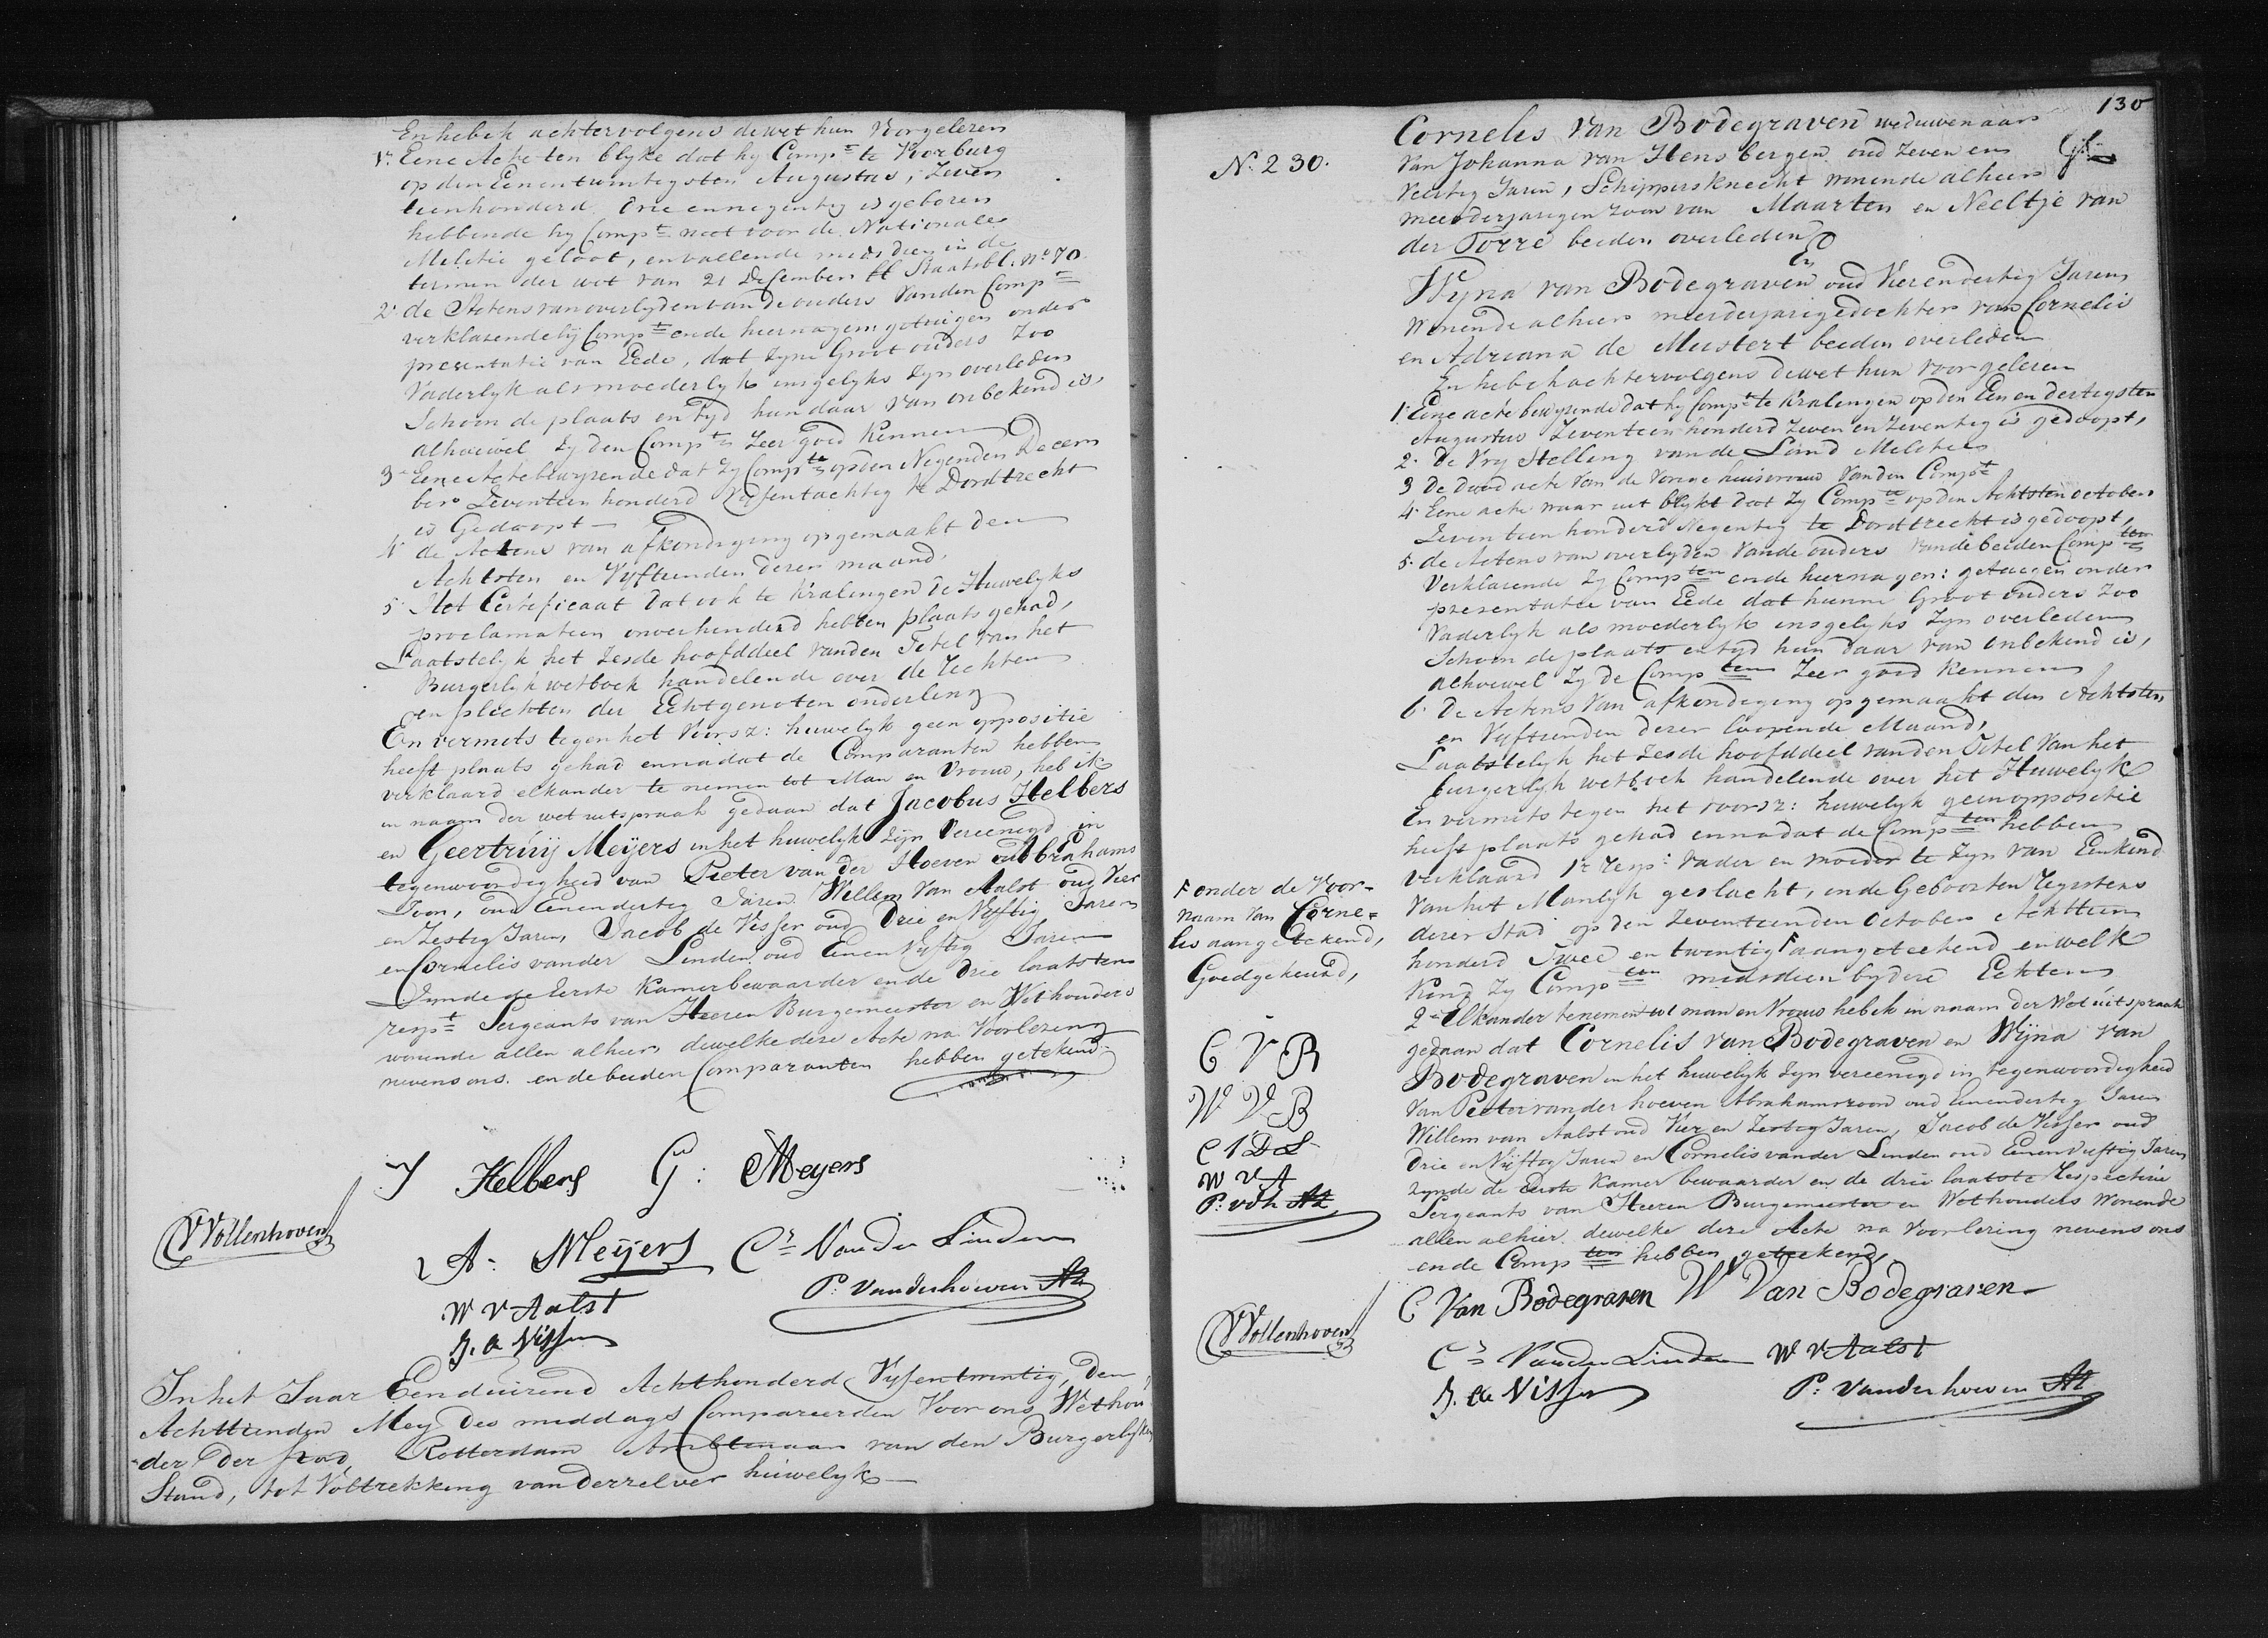 En heb ik achtervolgens de wet hun Voorgelezen
1º. Eene Acte ten blyke dat hy Compt te Voorburg
op den Eenentwintigsten Augustus, Zeven
tienhonderd Drie en negentig is geboren
hebbende hy Compt niet voor de Nationale
Militie geloot, en vallende mids dien in de
termen der wet van 21 December ll Staatsbl. No 70
2. de Actens van overlyden van de ouders Van den Compt
verklarende hy Compt en de hiernagem: getuigen onder
presentatie van Eede, dat zyne Groot ouders Zoo
Vaderlyk als moederlyk insgelyks zyn overleden
Schoon de plaats en tyd hun daar Van onbekend is,
alhoewel Zy den Compt Zeer goed Kennen
3 Eene Acte bewyzende dat Zy Compte op den Negenden Decem
ber Zeventien honderd Vyfentachtig te Dordtrecht
is Gedoopt
4 de Actens van afkondiging opgemaakt den
Achtsten en Vyftienden dezer maand,
5 Het Certificaat dat ook te Kralingen de Huwelyks
proclamatien onverhinderd hebben plaats gehad,
Laatstelyk het Zesde hoofddeel Van den Titel Van het
Burgerlyk wetboek handelende over de Rechten
en plichten der Echtgenoten onderling
En vermits tegen het Voorsz: huwelyk geen oppositie
heeft plaats gehad en nadat de Comparanten hebben
verklaard elkander te nemen tot Man en Vrouw, heb ik
in naam der wet uitspraak gedaan dat Jacobus Helbers
en Geertruij Meijers in het huwelyk zyn Vereenigd in
tegenwoordigheid van Pieter van der Hoeven Abrahams
Zoon, oud Eenendertig Jaren Willem Van Aalst oud Vier
en Zestig Jaren, Jacob de Visser oud Drie en Vyftig Jaren
en Cornelis vander Linden oud Eenen Vyftig Jaren
Zynde de Eerste Kamerbewaarder en de Drie laatsten
respt Sergeants van Heeren Burgemeester en Wethouders
wonende allen alhier, dewelke deze Acte na Voorlezing
nevens ons en de beiden Comparanten hebben getekend
J Helbers G: Meyers
VVollenhoven
A: Meijers Cs Van der Linden
P: Vanderhoeven Az
W V Aalst
J. de Visser
In het Jaar Eenduizend Achthonderd Vyfentwintig, Den
Achttienden Mey des middags Compareerden Voor ons Wethou
der der Stad Rotterdam Ambtenaar van den Burgerlyken
Stand, tot Voltrekking van derzelver huwelyk
130
No. 230.
Cornelis Van Bodegraven weduwenaar
Van Johanna van Hensbergen oud Zeven en
Veertig Jaren, Schippersknecht wonende alhier
meerderjarigen zoon van Maarten en Neeltje van
der Torre beiden overleden
En
Wyna van Bodegraven oud Vierendertig Jaren
Wonende alhier meerderjarige dochter van Cornelis
en Adriana de Mustert beiden overleden
En heb ik achtervolgens de wet hun voorgelezen
1. Eene acte bewyzende dat hy Compt te Kralingen op den Een en dertigsten
Augustus Zeventien honderd Zeven en Zeventig is gedoopt,
2. De Vry Stelling van de Land Militie
3 De Dood acte Van de Vorige huisvrouw Van den Compt
4. Eene acte waar uit blykt dat Zy Compte op den Achtsten october
Zeventien honderd Negentig te Dordtrecht is gedoopt,
5. de Actens van overlyden Van de ouders Van de beiden Compten
Verklarende Zy Compten en de hiernagem: getuigen onder
presentatie van Eede dat hunne Groot ouders Zoo
Vaderlyk als moederlyk insgelyks Zyn overleden
Schoon de plaats en tyd hun daar van onbekend is,
alhoewel Zy de Compten Zeer goed Kennen
6. De Actens Van afkondiging opgemaakt den Achtsten
en Vyftienden dezer loopende Maand,
Laatstelyk het Zesde hoofddeel van den Titel Van het
burgerlyk wetboek handelende over het Huwelyk
En vermits tegen het voorsz: huwelyk geen oppositie
heeft plaats gehad en nadat de Compten hebben
verklaard 1º resp: Vader en moeder te Zyn van Een kind
Van het Manlyk geslacht, in de Geboorten Registers
dezer Stad op den Zeventienden October Achttien
honderd Twee en twintig F aangeteekend en welk
Kind Zy Compten midsdien by deze Echten
2º Elkander te nemen tot man en Vrouw heb ik in naam der Wet uitspraak
gedaan dat Cornelis van Bodegraven en Wijna van
Bodegraven in het huwelyk Zyn vereenigd in tegenwoordigheid
Van Pieter van der hoeven Abrahamszoon oud Eenendertig Jaren
Willem van Aalst oud Vier en Zestig Jaren, Jacob de Visser oud
Drie en Vijftig Jaren en Cornelis vander Linden oud Eenen Vijftig Jaren
zynde de Eerste Kamer bewaarder en de drie laatste Respective
Sergeants van Heeren Burgemeester en Wethouders Wonende
allen alhier dewelke deze Acte na Voorlezing nevens ons
en de Compten hebben geteekend,
F onder de Voor-
naam Van Corne=
lis aangetekend,
Goedgekeurd,
C V B
W V B
C V D L
W v A
P: vdh Az
C Van Bodegraven W Van Bodegraven
VVollenhoven
Cs Van der Linden W V Aalst
J. de Visser P: Vanderhoeven Az